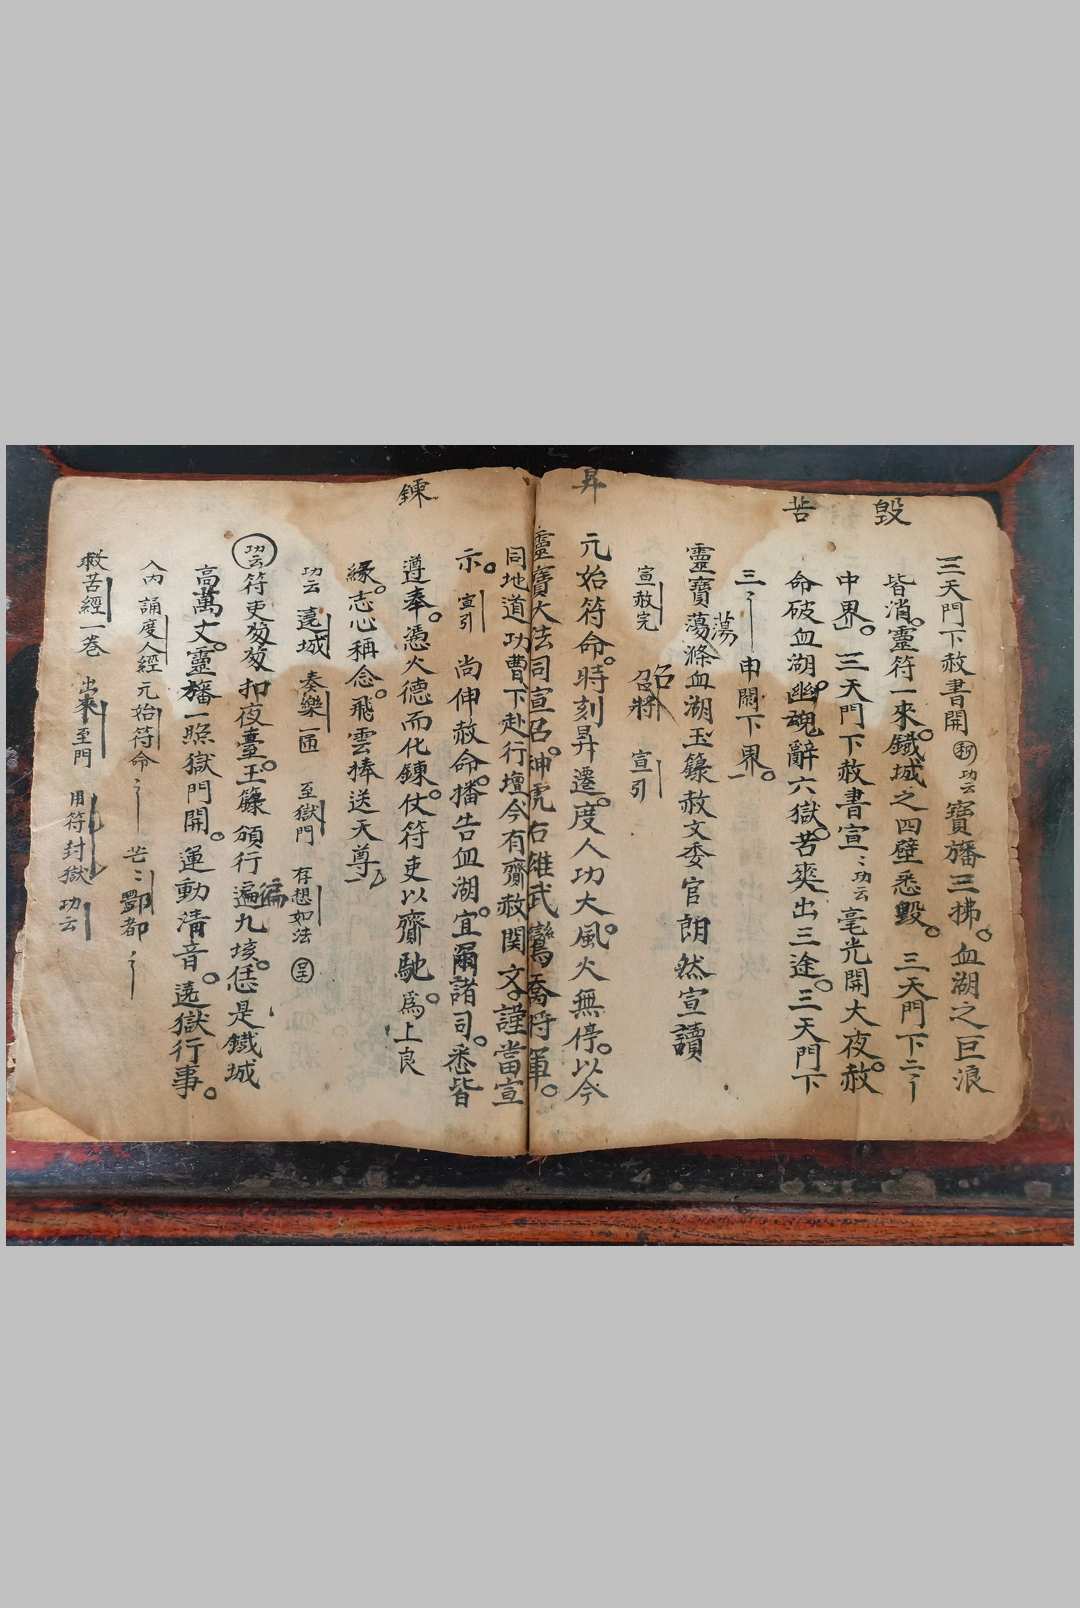 毀
苦
昇
鍊
三天門下赦書開 功云 寶旛三拂。血湖之巨浪
皆消。靈符一來。鐵城之四壁悉毀。 三天門下二
中界。三天門下赦書宣 功云 毫光開大夜。赦
命破血湖。幽魂辭六獄。苦爽出三途。三天門下
三 申闕下界。
靈寶蕩蕩滌血湖玉籙赦文委官朗然宣讀
宣赦完 召將 宣引
元始符命。時刻昇遷。度人功大。風火無停。以今
靈寶大法司宣召。神虎右雄武鸞喬將軍。
同地道功曹下赴行壇今有齎赦関文謹當宣
示。宣引 尚伸赦命。播告血湖。宜爾諸司。悉皆
遵奉。憑火德而化鍊。仗符吏以齎馳。爲上良
緣。志心稱念。飛雲捧送天尊
功云 遶城 奏樂一匝 至獄門 存想如法
功云 符吏匆匆扣夜臺。玉籙頒行遍徧九垓。恁是鐵城
高萬丈。靈旛一照獄門開。運動清音。遶獄行事。
入内 誦度人經 元始符命 芒 酆都
救苦經一卷 出來至門 用符封獄 功云